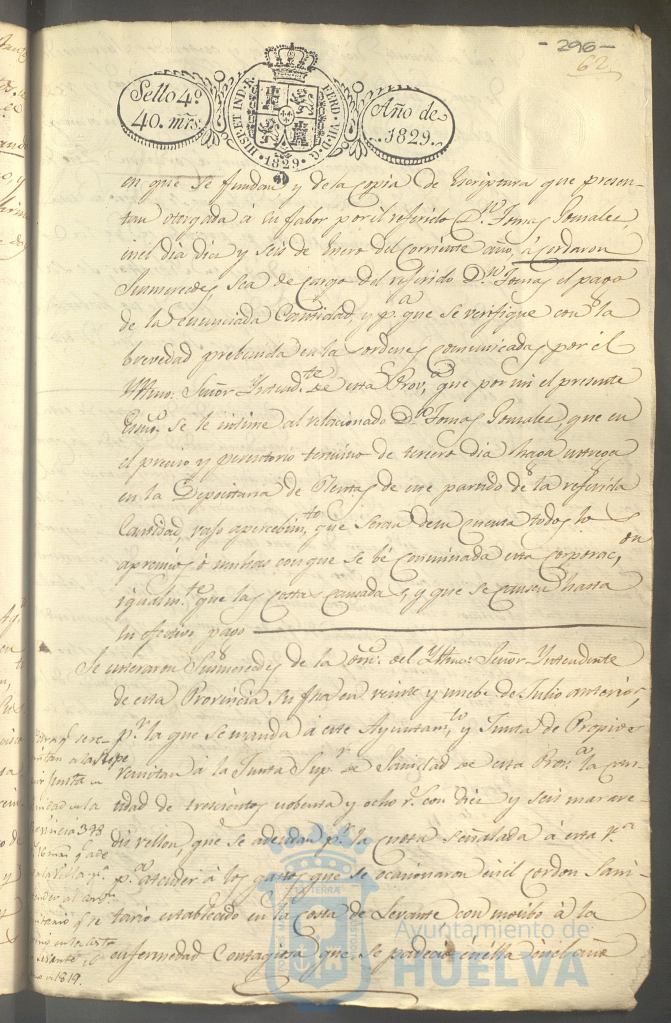 - 296 -
62
Sello 4º
40. mrs.
HISP. ET IND. R. FERD. VII. D. G. 1829.
Año de
1829.
en que se fundan y de la copia de Escriptura que presen-
tan otorgada á su fabor por el referido Dn. Tomas Gonzalez,
en el dia diez y seis de Enero del corriente año, acordaron
Susmercedes sea de cargo del referido Dn. Tomas el pago
de la enunciada cantidad, y pa. que se verifique con la
brevedad prebenida en las ordenes comunicadas por el
Yltmo. Señor Intendte. de esta Prova. que por mi el presente
Esno. se le intime al relacionado Dn. Tomas Gonzalez, que en
el preciso y perentorio termino de tercero dia haga entrega
en la Depositaria de Rentas de este partido de la referida
Cantidad, vajo apercebimto. que seran de su cuenta todos los
apremios ó multas con que se bé conminada esta corporacon.
igualmte. que las costas causadas, y que se causen hasta
su efectivo pago
Se enteraron Susmercedes de la orn. del Yltmo. Señor Yntendente
de esta Provincia su fha en veinte y nuebe de Julio anterior,
pr. la que se manda á este Ayuntamto. y Junta de Propios
remitan á la Junta Supr. de Sanidad de esta Prova. la can-
tidad de trescientos nobenta y ocho rs. con diez y seis marave-
dis vellon, que se adeudan pr. la cuota señalada á esta Va.
pa. atender á los gastos que se ocacionaron en el cordon Sani-
tario establecido en la Costa de Levante con motibo á la
enfermedad Contagiosa que se padeció en ella en el año
se re-
mitan a la Supe
rior Junta de
Sanidad de la
Provincia 398
el cordon
1819.
Ayuntamiento de
HUELVA